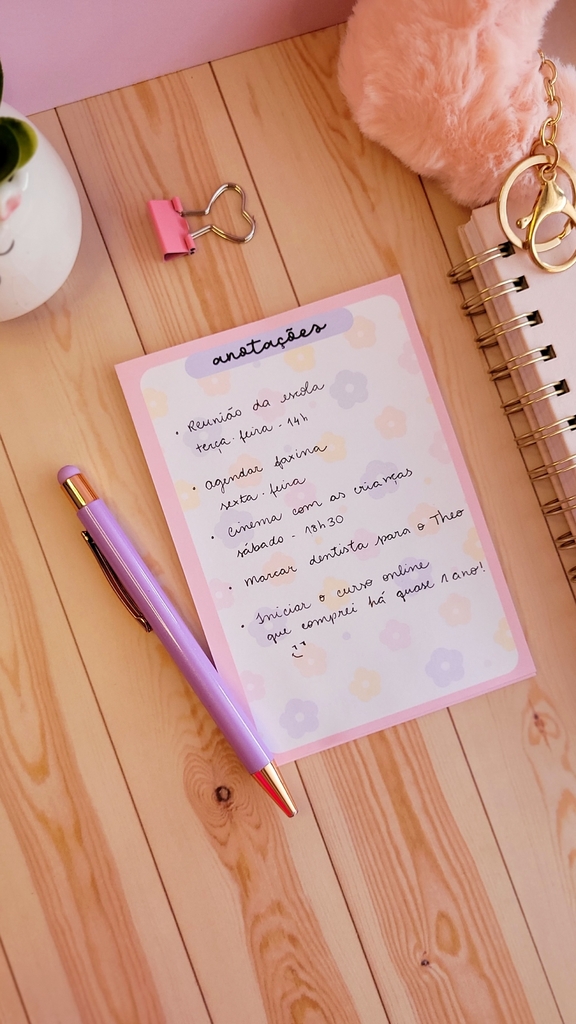 anotações
• Reunião da escola
terça-feira - 14h
• agendar faxina
sexta-feira
• cinema com as crianças
sábado - 18h30
• marcar dentista para o Theo
• Iniciar o curso online
que comprei há quase 1 ano!